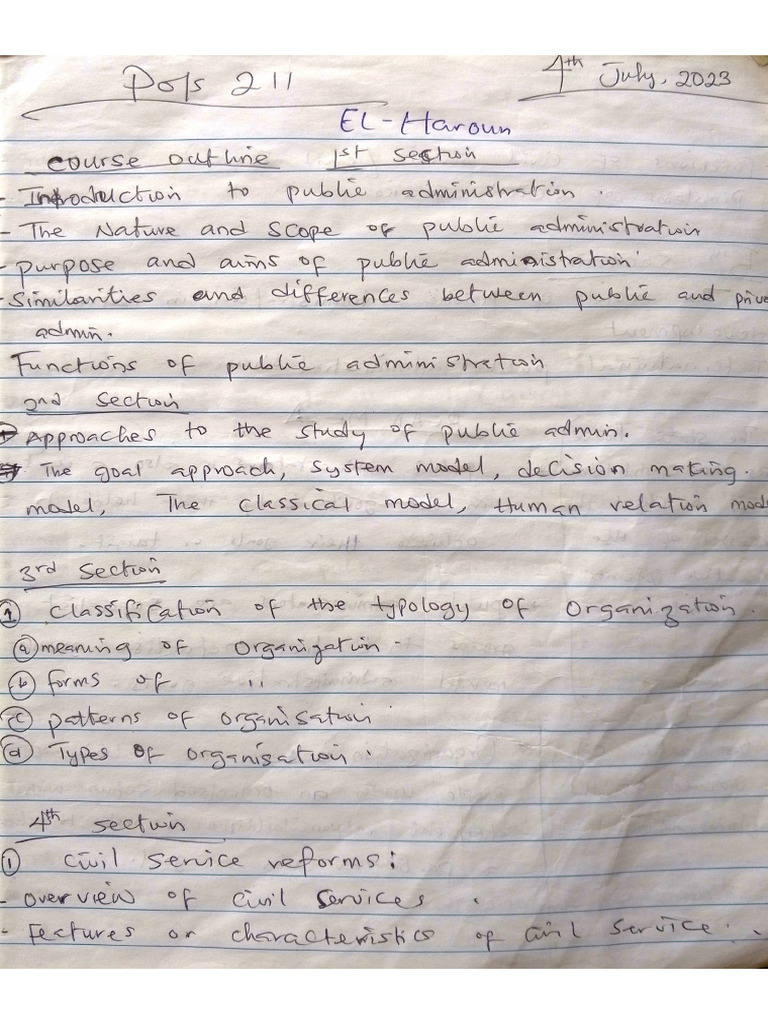 Pols 211
4th July, 2023
EL-Haroun
course outline 1st section
- Introduction to public administration.
- The Nature and scope of public administration
- purpose and aims of public administration
- Similarities and differences between public and prive
admin.
Functions of public administration
2nd section
Approaches to the study of public admin.
The goal approach, system model, decision making.
model, The classical model, Human relation mode
3rd section
① Classification of the typology of organization.
ⓐ meaning of organization -
ⓑ forms of ,,
ⓒ patterns of organisation
ⓓ Types of organisation.
4th section
① Civil service reforms:
- overview of civil services.
- Features or characteristics of civil service.